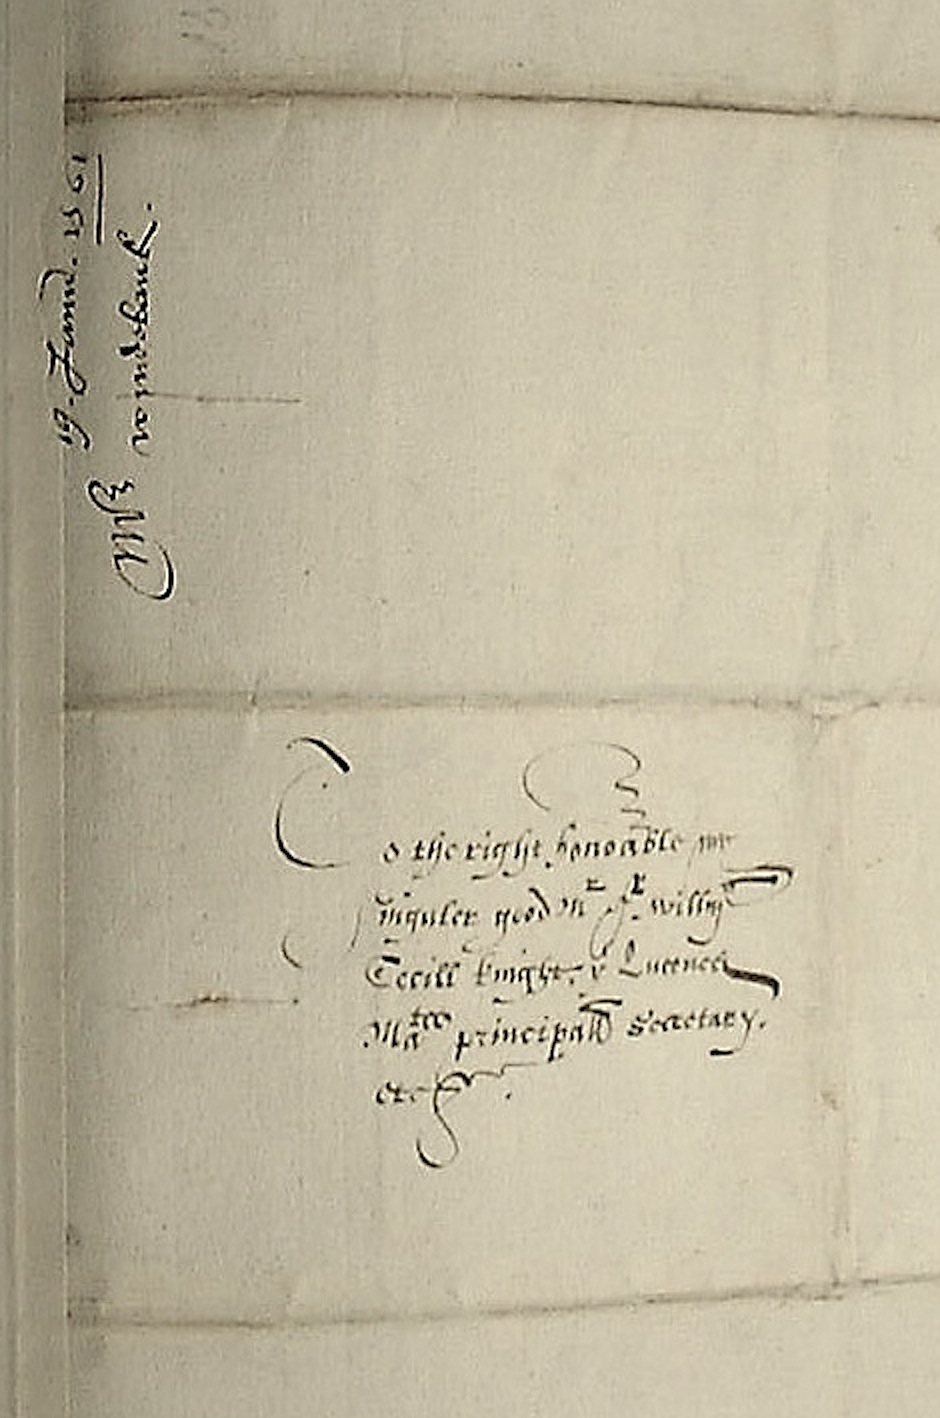 19. Junii. 1561
Mr wyndebank.
To the right honorable my
singuler good Mr Sr willm
Cecill knight, ye Quenes
Maties principall Secretary.
etc